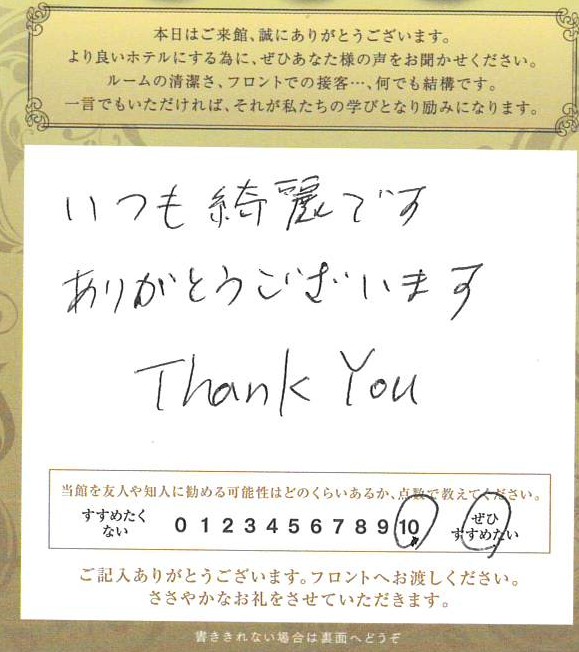 本日はご来館、誠にありがとうございます。
より良いホテルにする為に、ぜひあなた様の声をお聞かせください。
ルームの清潔さ、フロントでの接客…、何でも結構です。
一言でもいただければ、それが私たちの学びとなり励みになります。
いつも綺麗です
ありがとうございます
Thank You
当館を友人や知人に勧める可能性はどのくらいあるか、点数で教えてください。
すすめたく
ない
0 1 2 3 4 5 6 7 8 9 10
ぜひ
すすめたい
ご記入ありがとうございます。フロントへお渡しください。
ささやかなお礼をさせていただきます。
書ききれない場合は裏面へどうぞ